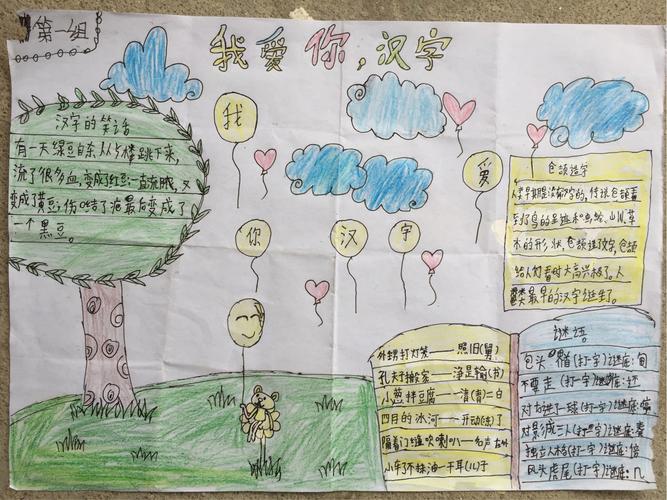 第一组
我爱你,汉字
汉字的笑话
有一天绿豆自杀从5楼跳下来,
流了很多血,变成了红豆一直流脓,又
变成了黄豆,伤口结了疤最后变成了
一个黑豆。
我
爱
你
汉
字
仓颉造字
人类早期是没有文字的,传说仓颉看
到了鸟的足迹和
山川,草
木的形状,仓颉造了文字,仓颉
给人们看时大高兴极了。人
类最早的汉字诞生了。
外甥打灯笼——照旧(舅)
孔夫子搬家——净是输(书)
小葱拌豆腐——一清(青)二白
四月的冰河——开动(冻)了
隔着门缝吹喇叭——名声在外
小车不抹油——干耳(儿)子
谜语。
包头 猪(打一字)谜底:
不要走(打一字)谜底:还
对方进了一球(打一字)谜底:
对影成三人(打一字)谜底:奏
独立人格(打一字)谜底:
凤头虎尾(打一字)谜底:几